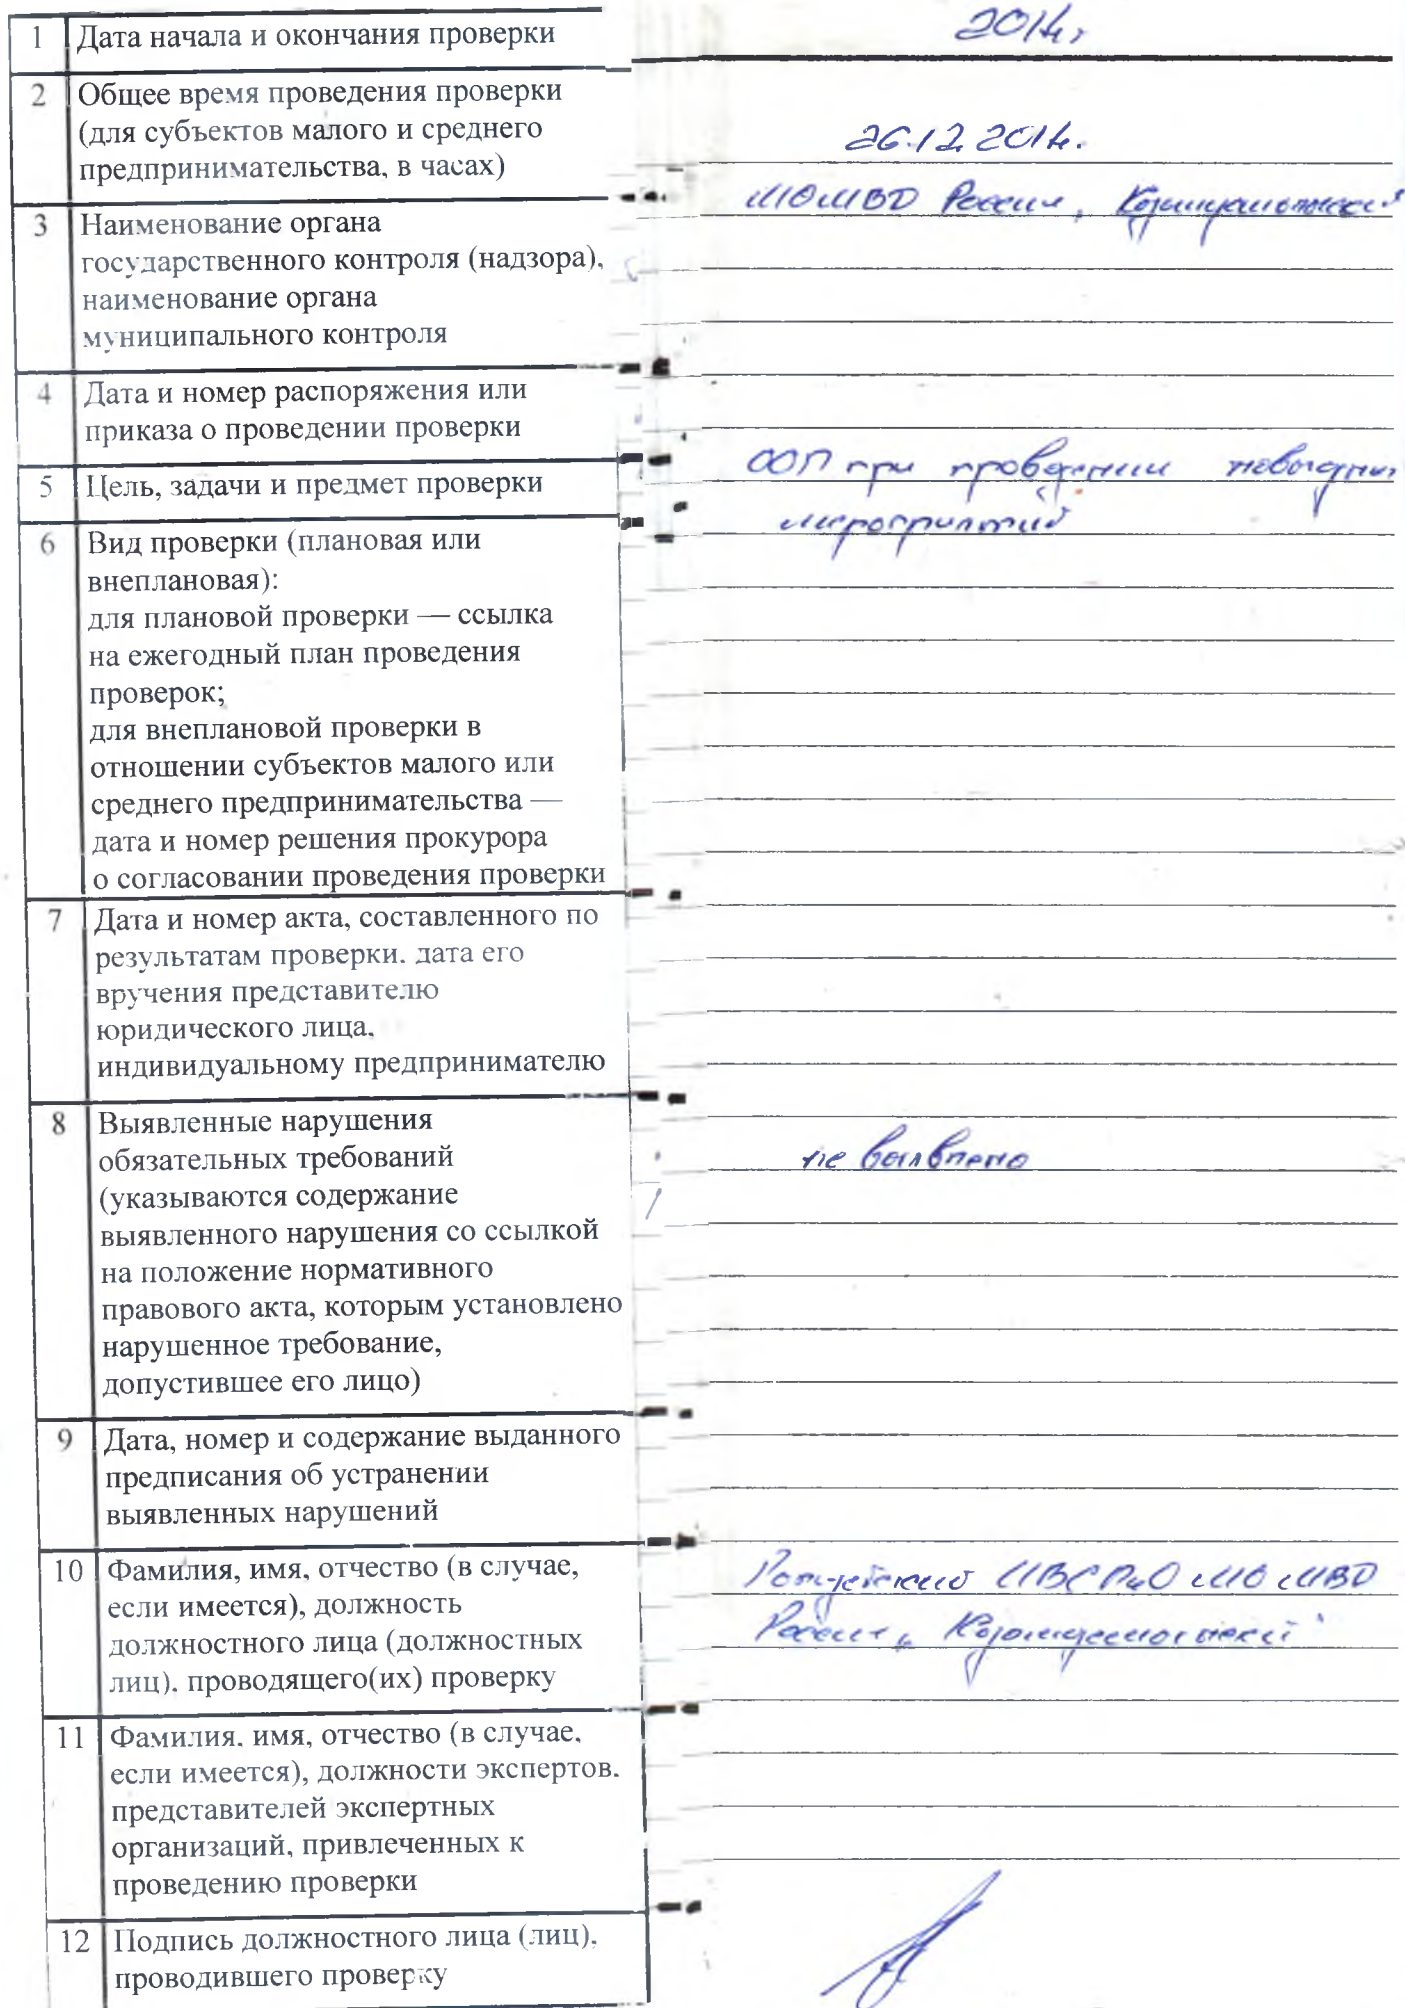 1 Дата начала и окончания проверки
2014г
2 Общее время проведения проверки
(для субъектов малого и среднего
предпринимательства, в часах)
26.12.2014.
3 Наименование органа
государственного контроля (надзора),
наименование органа
муниципального контроля
МОМВД России „
4 Дата и номер распоряжения или
приказа о проведении проверки
5 Цель, задачи и предмет проверки
ООП при проведении новогодних
мероприятий
6 Вид проверки (плановая или
внеплановая):
для плановой проверки — ссылка
на ежегодный план проведения
проверок;
для внеплановой проверки в
отношении субъектов малого или
среднего предпринимательства —
дата и номер решения прокурора
о согласовании проведения проверки
7 Дата и номер акта, составленного по
результатам проверки, дата его
вручения представителю
юридического лица,
индивидуальному предпринимателю
8 Выявленные нарушения
обязательных требований
(указываются содержание
выявленного нарушения со ссылкой
на положение нормативного
правового акта, которым установлено
нарушенное требование,
допустившее его лицо)
не выявлено
9 Дата, номер и содержание выданного
предписания об устранении
выявленных нарушений
10 Фамилия, имя, отчество (в случае,
если имеется), должность
должностного лица (должностных
лиц), проводящего(их) проверку
МО МВД
России „
11 Фамилия, имя, отчество (в случае,
если имеется), должности экспертов,
представителей экспертных
организаций, привлеченных к
проведению проверки
12 Подпись должностного лица (лиц),
проводившего проверку